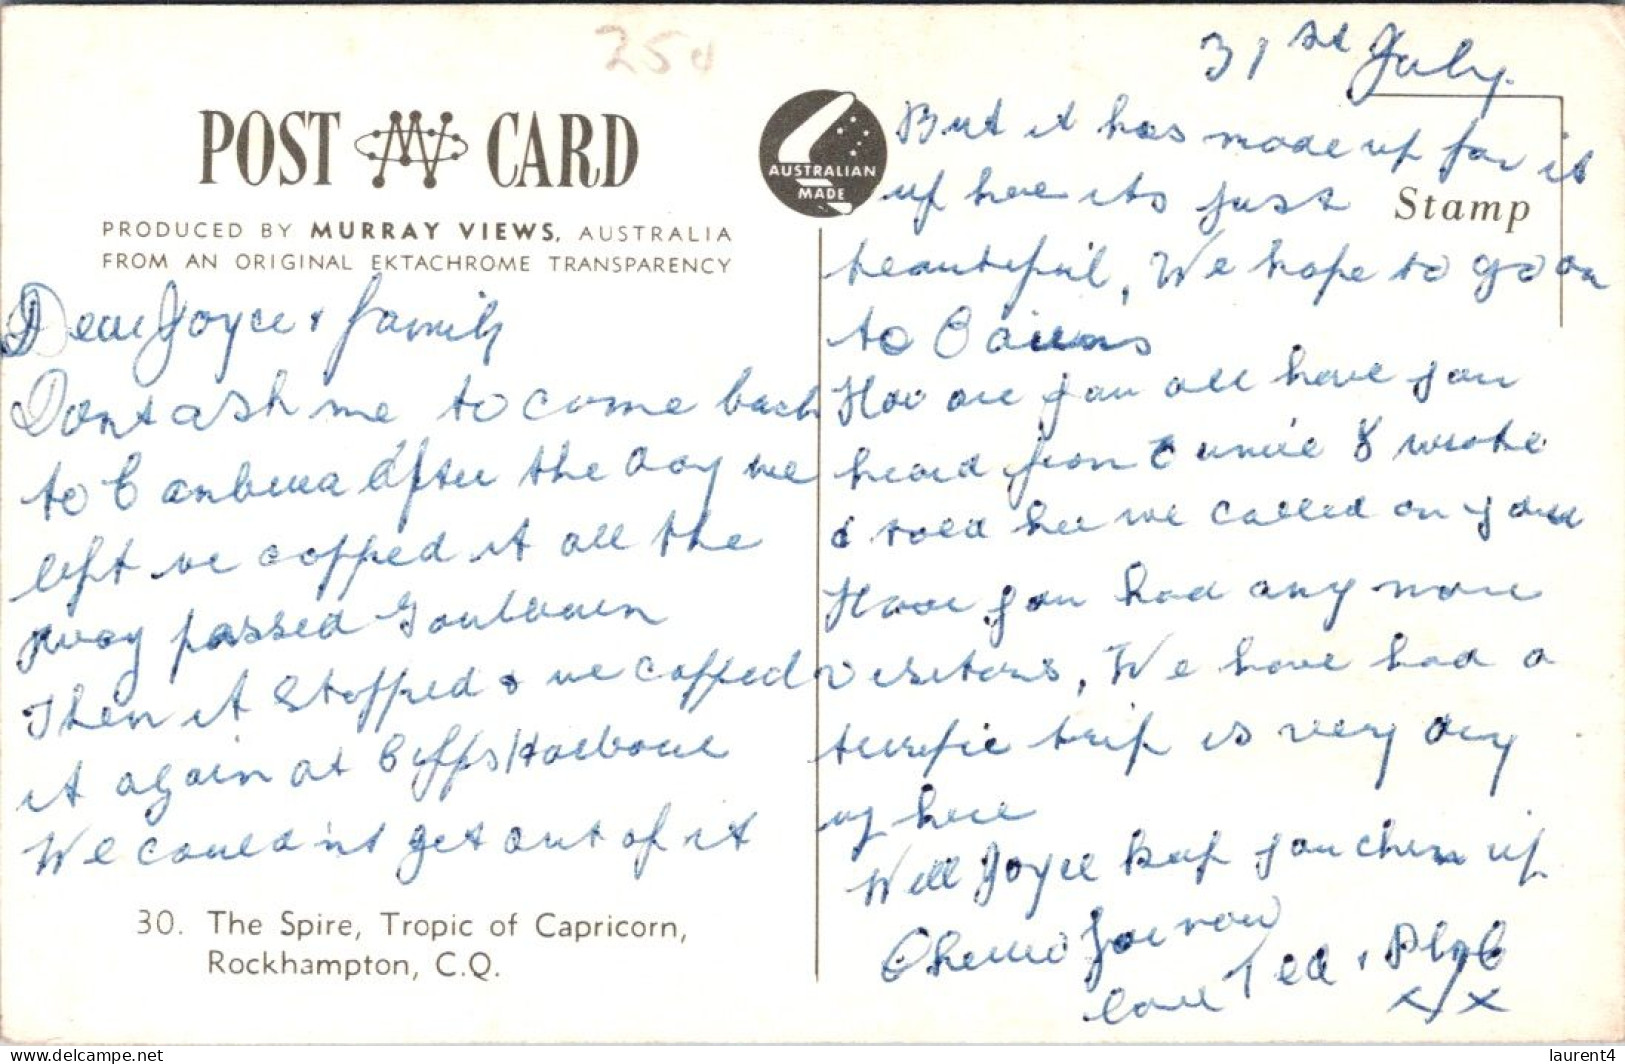 25c
POST CARD
PRODUCED BY MURRAY VIEWS, AUSTRALIA
FROM AN ORIGINAL EKTACHROME TRANSPARENCY
AUSTRALIAN
MADE
Stamp
Dear Joyce & family
Dont ask me to come back
to Canberra after the day we
left we copped it all the
way passed Goulburn
Then it stopped & we copped
it again at Coffs Harbour
We could'nt get out of it
30. The Spire, Tropic of Capricorn,
Rockhampton, C.Q.
31st July.
But it has made up for it
up here its just
beautiful, We hope to go on
to Cairns
How are you all have you
heard from Eunice I wrote
& told her we called on you
Have you had any more
visitors, We have had a
terrific trip is very dry
up here
Well Joyce keep you chin up
Cheerio for now
love Ted & Phyl
x x
laurent4